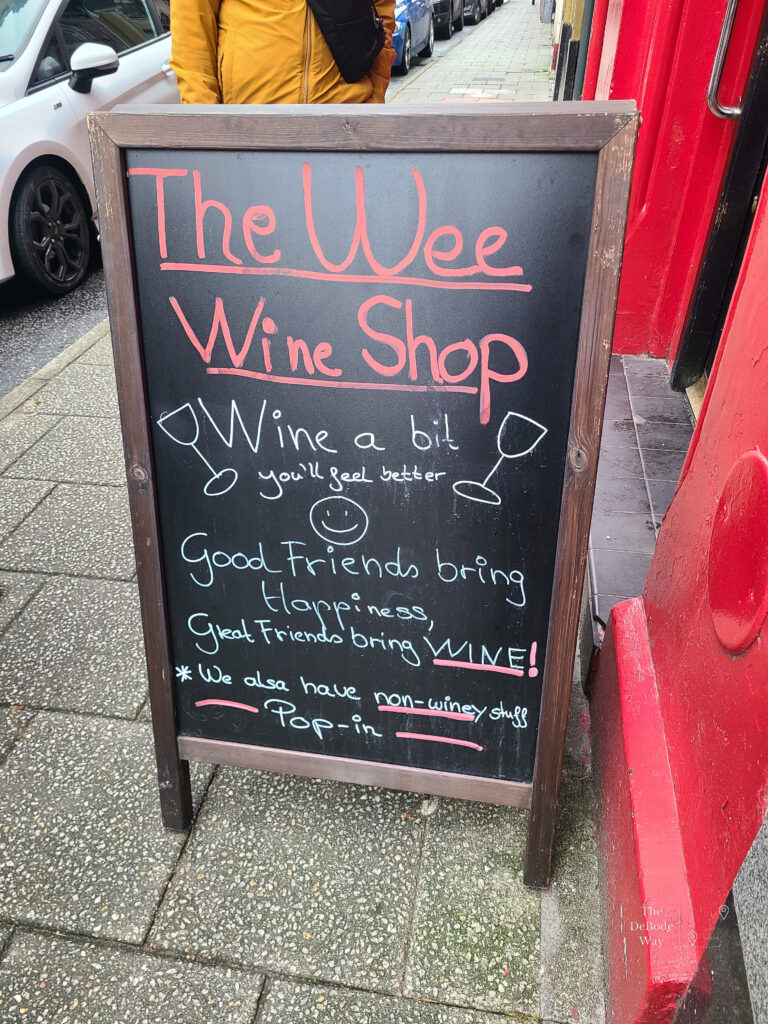 The Wee
Wine Shop
Wine a bit
you'll feel better
Good Friends bring
Happiness,
Great Friends bring WINE!
* We also have non-winey stuff
Pop-in
The
DeBode
Way